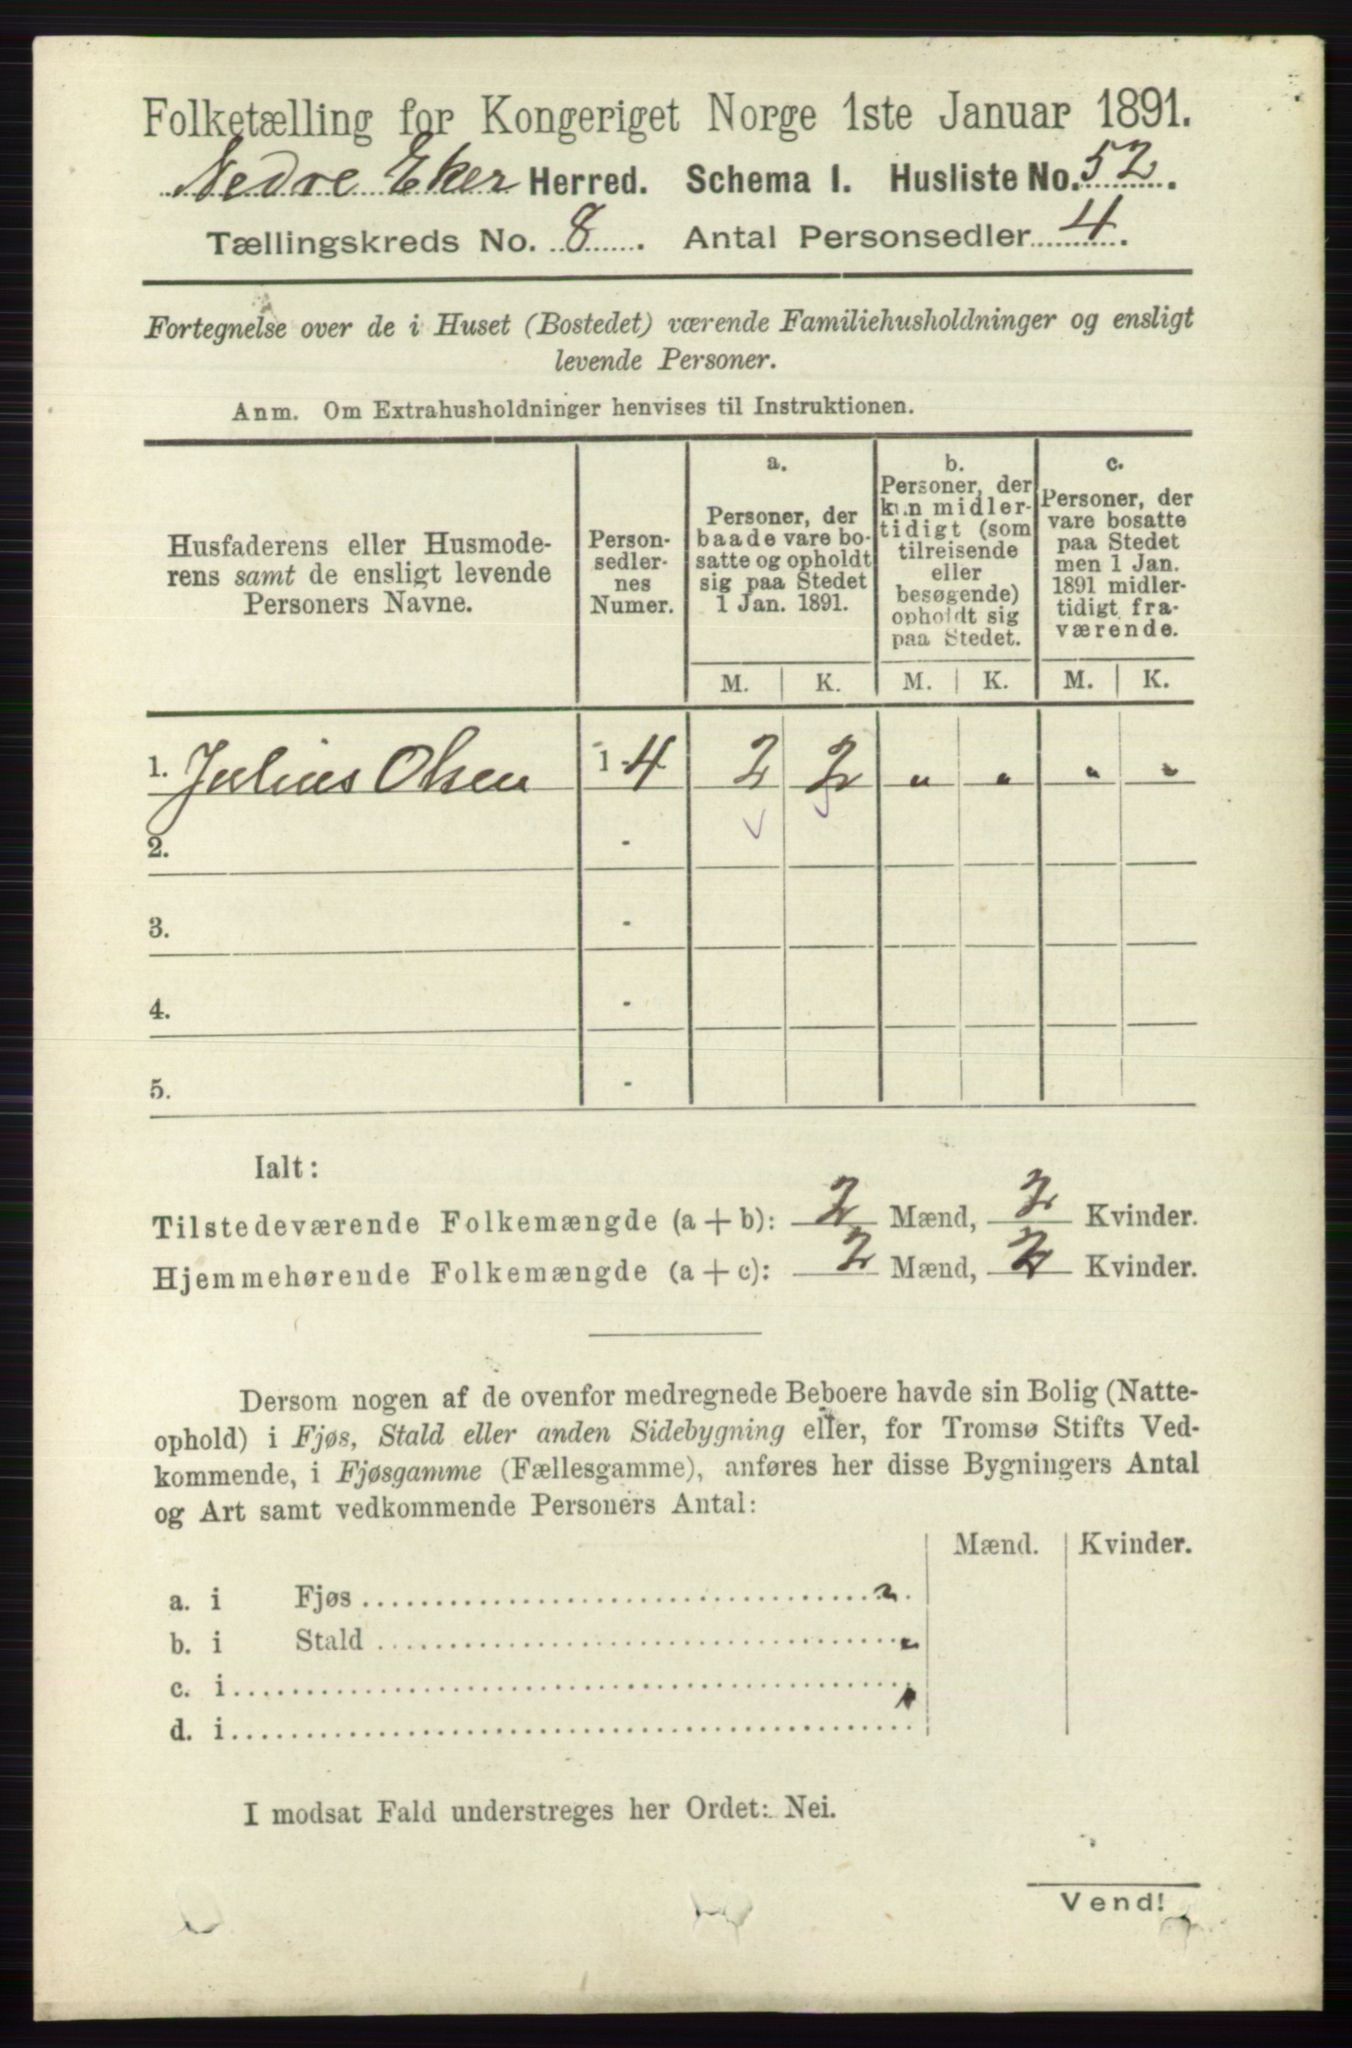 Folketælling for Kongeriget Norge 1ste Januar 1891.
Nedre Eker Herred. Schema I. Husliste No. 52.
Tællingskreds No. 8. Antal Personsedler 4.
Fortegnelse over de i Huset (Bostedet) værende Familiehusholdninger og ensligt
levende Personer.
Anm. Om Extrahusholdninger henvises til Instruktionen.
Husfaderens eller Husmode-
rens samt de ensligt levende
Personers Navne.
Person-
sedler-
nes
Numer.
a.
Personer, der
baade vare bo-
satte og opholdt
sig paa Stedet
1 Jan. 1891.
b.
Personer, der
kun midler-
tidigt (som
tilreisende
eller
besøgende)
opholdt sig
paa Stedet.
c.
Personer, der
vare bosatte
paa Stedet
men 1 Jan.
1891 midler-
tidigt fra-
værende.
M. K. M. K. M. K.
1. Julius Olsen 1-4 2 2 " " " "
2. -
3. -
4. -
5. -
Ialt:
Tilstedeværende Folkemængde (a + b): 2 Mænd, 2 Kvinder.
Hjemmehørende Folkemængde (a + c): 2 Mænd, 2 Kvinder.
Dersom nogen af de ovenfor medregnede Beboere havde sin Bolig (Natte-
ophold) i Fjøs, Stald eller anden Sidebygning eller, for Tromsø Stifts Ved-
kommende, i Fjøsgamme (Fællesgamme), anføres her disse Bygningers Antal
og Art samt vedkommende Personers Antal:
Mænd. Kvinder.
a. i Fjøs "
b. i Stald "
c. i "
d. i
I modsat Fald understreges her Ordet: Nei.
Vend!